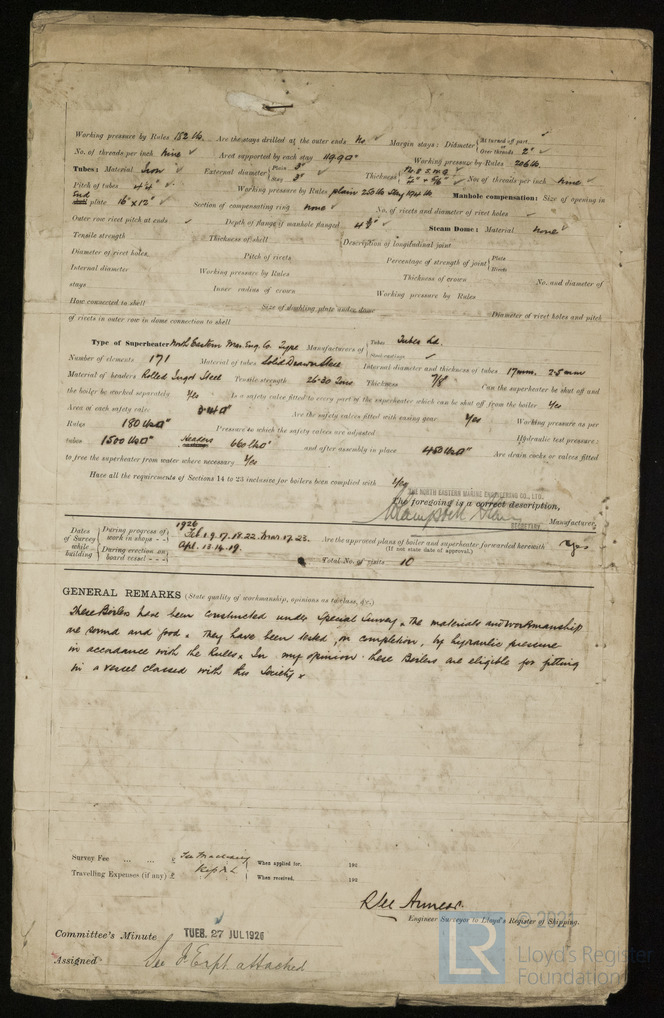 Working pressure by Rules 182 lb. Are the stays drilled at the outer ends No Margin stays: Diameter { At turned off part, or Over threads 2"
No. of threads per inch Nine Area supported by each stay Working pressure by Rules 206 lb.
Tubes: Material Iron External diameter { Plain 3" Stay 3" Thickness { No. 8 S.W.G. No. of threads per inch Nine
Pitch of tubes Working pressure by Rules Plain 250 lb Stay Manhole compensation: Size of opening in
End plate 16" x 12" Section of compensating ring None No. of rivets and diameter of rivet holes
Outer row rivet pitch at ends Depth of flange if manhole flanged Steam Dome: Material None
Tensile strength Thickness of shell Description of longitudinal joint
Diameter of rivet holes Pitch of rivets Percentage of strength of joint { Plate Rivets
Internal diameter Working pressure by Rules Thickness of crown No. and diameter of
stays Inner radius of crown Working pressure by Rules
How connected to shell Size of doubling plate under dome Diameter of rivet holes and pitch
of rivets in outer row in dome connection to shell
Type of Superheater North Eastern Mar. Eng. Co. Type Manufacturers of { Tubes Tubes Ld. Steel castings
Number of elements 171 Material of tubes Solid Drawn Steel Internal diameter and thickness of tubes 17 mm. 2.5 mm
Material of headers Rolled Ingot Steel Tensile strength 26-30 Tons Thickness 7/8" Can the superheater be shut off and
the boiler be worked separately Yes Is a safety valve fitted to every part of the superheater which can be shut off from the boiler Yes
Area of each safety valve Are the safety valves fitted with easing gear Yes Working pressure as per
Rules 180 lbs □" Pressure to which the safety valves are adjusted Hydraulic test pressure:
tubes 1500 lbs □" Headers 660 lbs □" and after assembly in place Are drain cocks or valves fitted
to free the superheater from water where necessary Yes
Have all the requirements of Sections 14 to 23 inclusive for boilers been complied with Yes
THE NORTH EASTERN MARINE ENGINEERING CO., LTD.
The foregoing is a correct description,
SECRETARY Manufacturer.
1926
Dates of Survey while building { During progress of work in shops - - Feb. 1. 9. 17. 18. 22. Mar. 17. 23. Are the approved plans of boiler and superheater forwarded herewith Yes
During erection on board vessel - - - Apl. 13. 14. 19. (If not state date of approval.)
Total No. of visits 10
GENERAL REMARKS (State quality of workmanship, opinions as to class, &c.)
These Boilers have been constructed under Special Survey. The materials and workmanship
are sound and good. They have been tested, on completion, by hydraulic pressure
in accordance with the Rules. In my opinion these Boilers are eligible for fitting
in a vessel classed with this Society.
Survey Fee ... ... £ See Machinery When applied for, 192
Travelling Expenses (if any) £ When received, 192
Engineer Surveyor to Lloyd's Register of Shipping.
Committee's Minute TUES. 27 JUL 1926
Assigned See attached
© 2021
LR
Lloyd's Register
Foundation